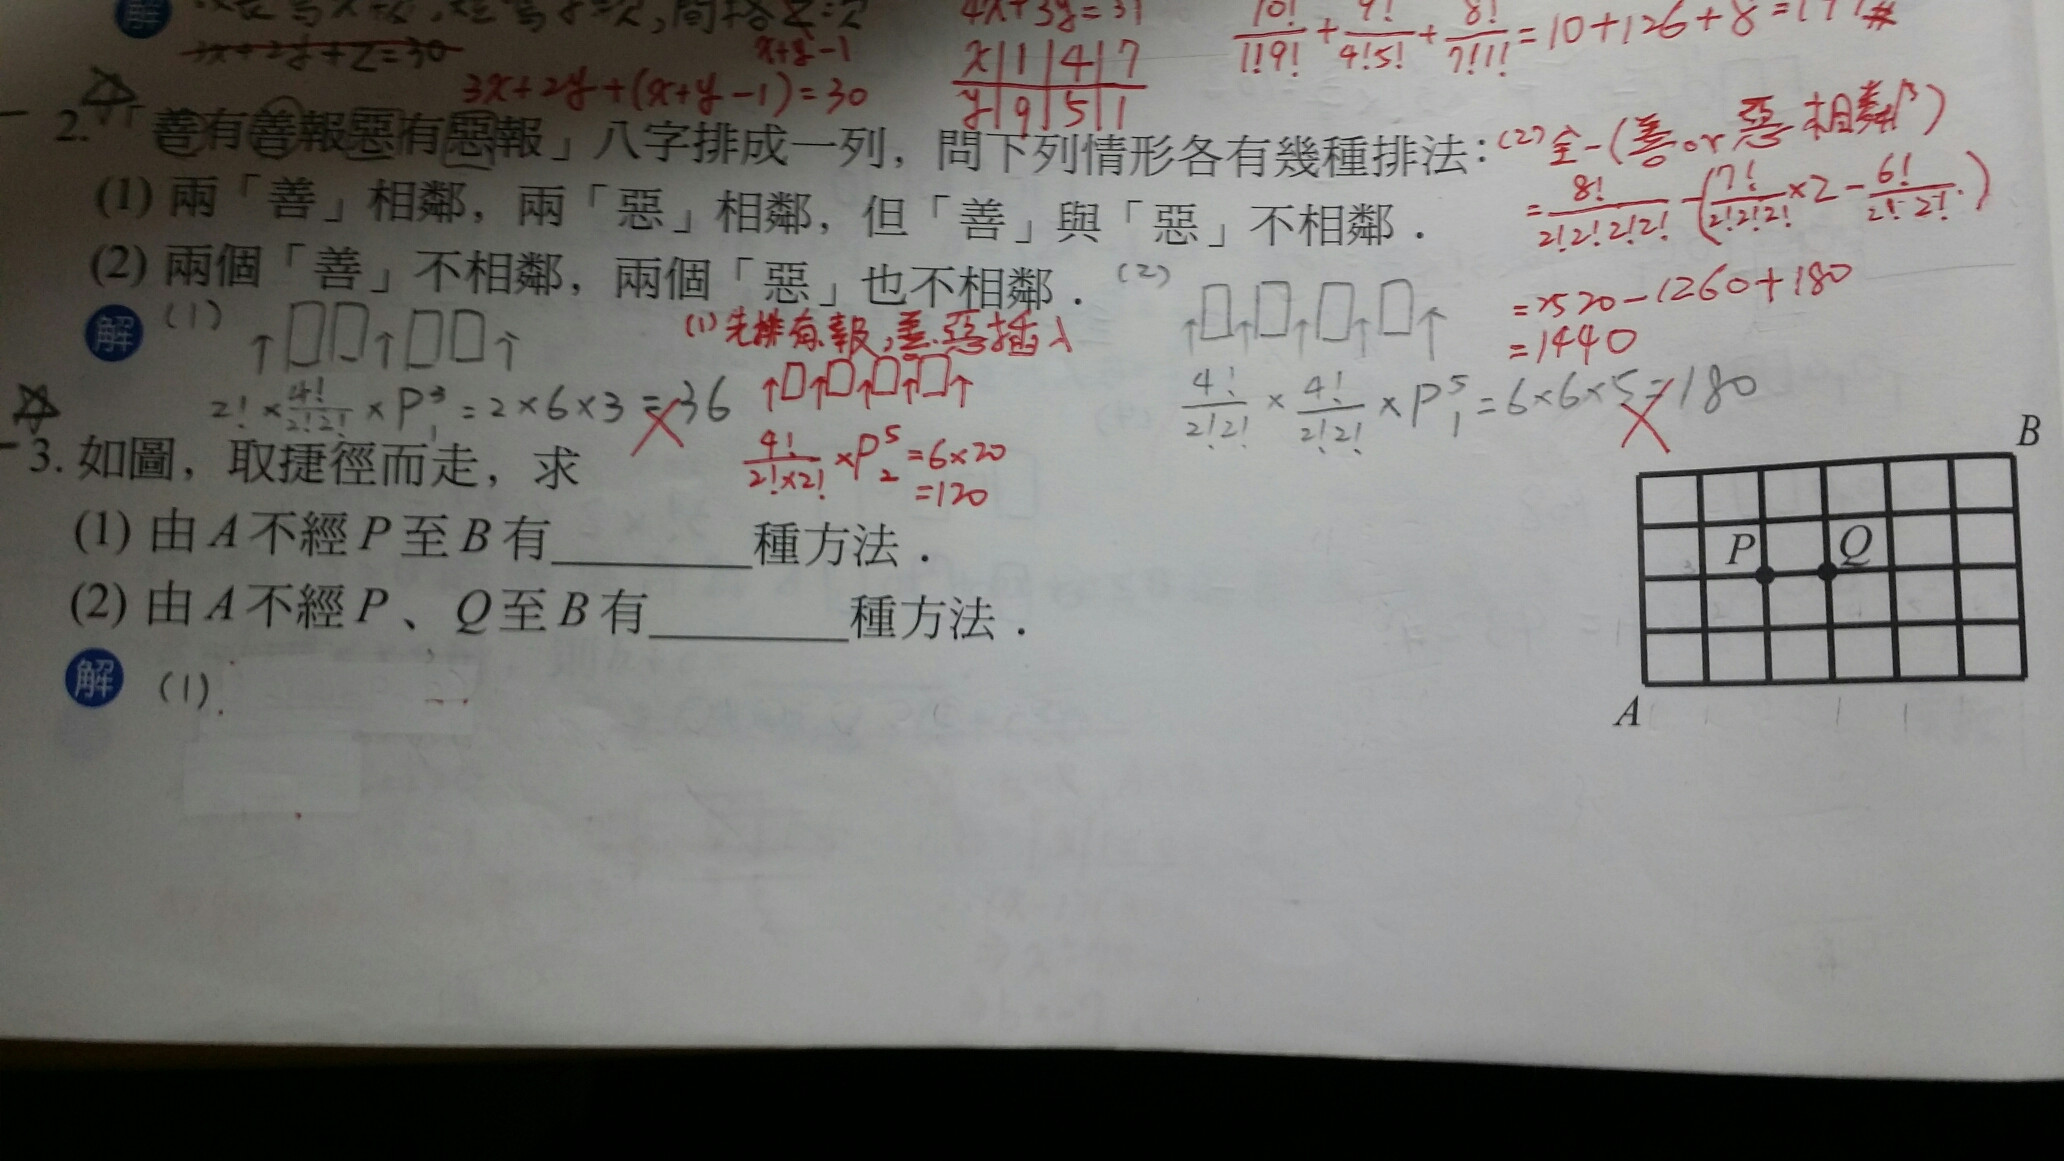 解
4x+3y=31
10!/1!9! + 9!/4!5! + 8!/7!1! =10+126+8
3x+2y+z=30
x+y-1
3x+2y+(x+y-1)=30
x 1 4 7
y 9 5 1
2.「善有善報惡有惡報」八字排成一列，問下列情形各有幾種排法：
(1) 兩「善」相鄰，兩「惡」相鄰，但「善」與「惡」不相鄰．
(2) 兩個「善」不相鄰，兩個「惡」也不相鄰．
(2) 全-(善or惡相鄰)
= 8!/2!2!2!2! - (7!/2!2!2! ×2 - 6!/2!2!)
=2520-1260+180
=1440
解 (1)
2! × 4!/2!2! × P³₁ = 2×6×3 = 36
(1) 先排有.報,善.惡插入
4!/2!×2! × P⁵₂ = 6×20
=120
(2)
4!/2!2! × 4!/2!2! × P⁵₁ = 6×6×5 = 180
3. 如圖，取捷徑而走，求
(1) 由 A 不經 P 至 B 有________種方法．
(2) 由 A 不經 P、Q 至 B 有________種方法．
B
P Q
A
解 (1)